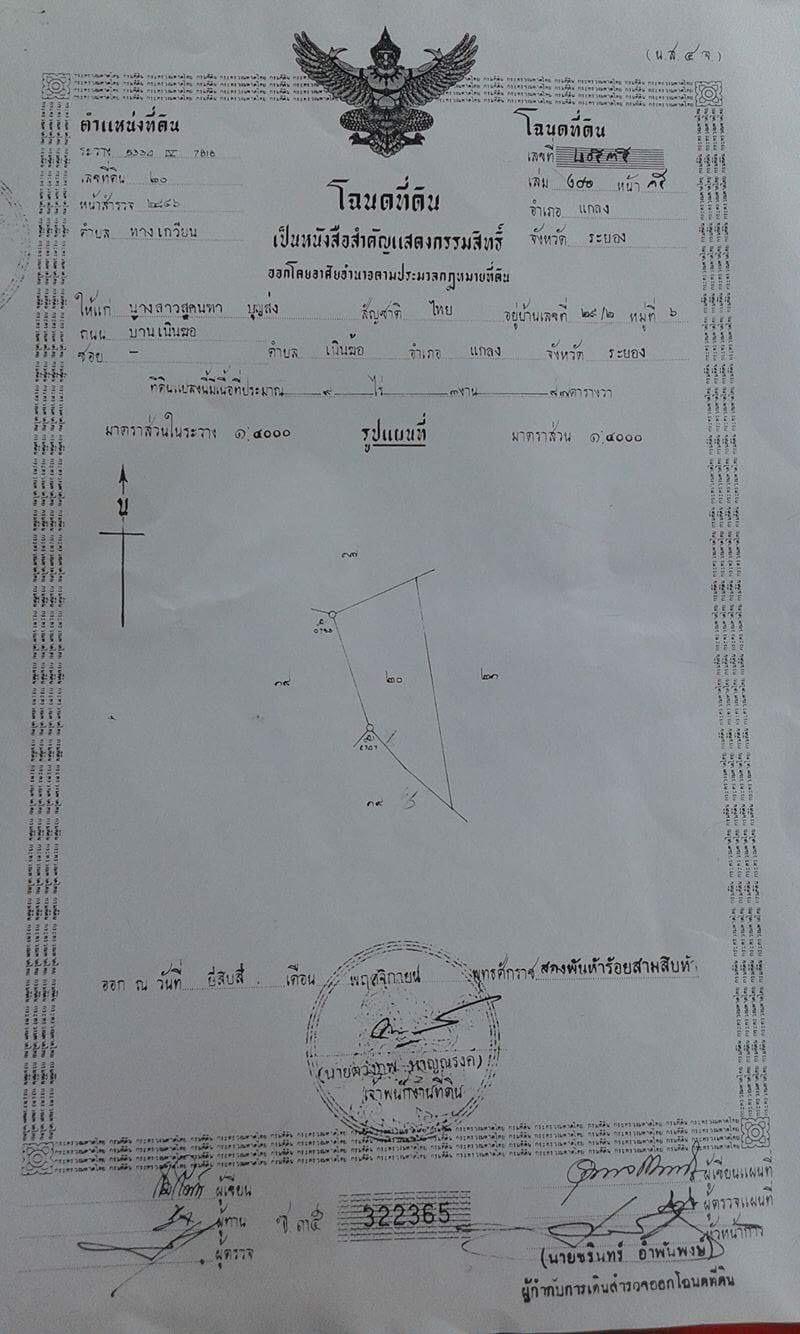 (น.ส.๔ จ)
ตำแหน่งที่ดิน
ระวาง ๕๓๓๔ IV 7818
เลขที่ดิน ๒๐
หน้าสำรวจ ๒๔๔๖
ตำบล ทางเกวียน
โฉนดที่ดิน
เลขที่
เล่ม หน้า ๓๕
อำเภอ แกลง
จังหวัด ระยอง
โฉนดที่ดิน
เป็นหนังสือสำคัญแสดงกรรมสิทธิ์
ออกโดยอาศัยอำนาจตามประมวลกฎหมายที่ดิน
ให้แก่ นางสาวสุคนทา บุญส่ง สัญชาติ ไทย อยู่บ้านเลขที่ ๒๙/๒ หมู่ที่ ๖
ถนน บ้านเนินฆ้อ
ซอย – ตำบล เนินฆ้อ อำเภอ แกลง จังหวัด ระยอง
ที่ดินแปลงนี้มีเนื้อที่ประมาณ ๙ ไร่ ๓ งาน ๘๗ ตารางวา
มาตราส่วนในระวาง ๑:๔๐๐๐ รูปแผนที่ มาตราส่วน ๑:๔๐๐๐
น
๑๗
๑๙
๒๐
๒๓
๑๙
ออก ณ วันที่ ยี่สิบสี่ เดือน พฤศจิกายน พุทธศักราช สองพันห้าร้อยสามสิบห้า
เจ้าพนักงานที่ดิน
ผู้เขียน
ผู้ทาน
ผู้ตรวจ
ช ๓๕ 322365
ผู้เขียนแผนที่
ผู้ตรวจแผนที่
หัวหน้ากอง
(นายชรินทร์ อำพันพงษ์)
ผู้กำกับการเดินสำรวจออกโฉนดที่ดิน